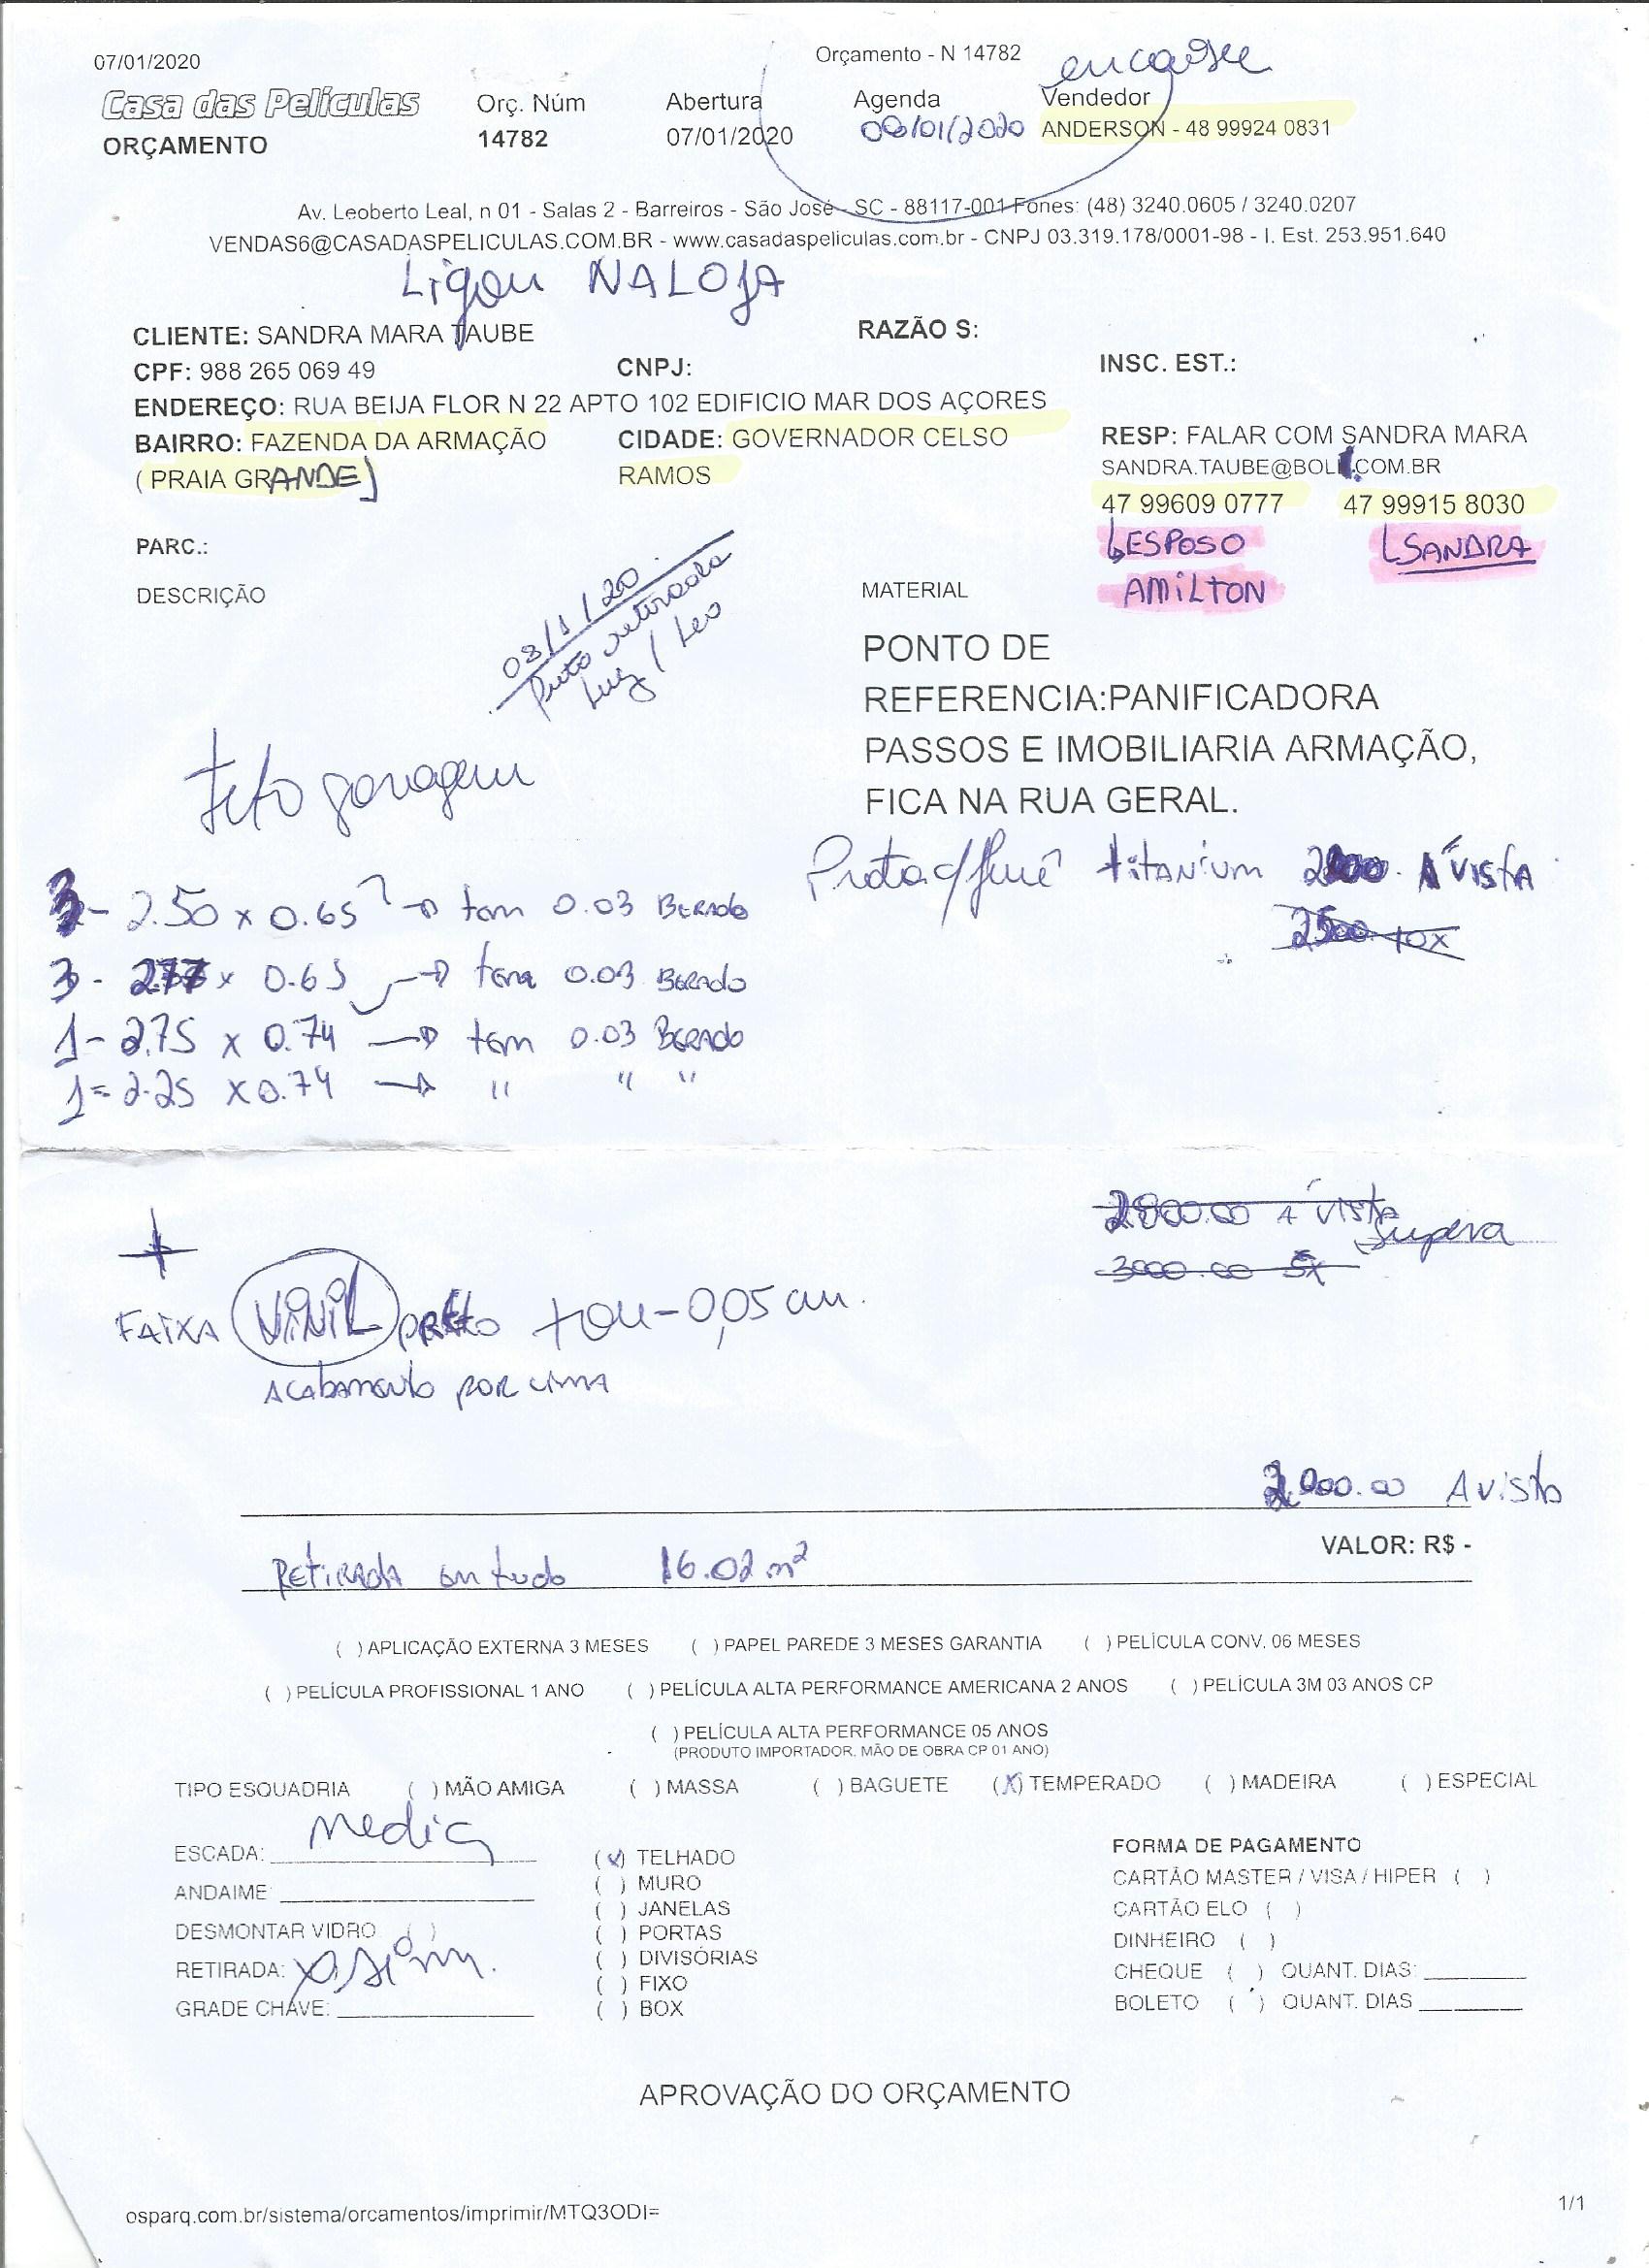 07/01/2020
Orçamento - N 14782
encaixe
Casa das Películas
Orç. Núm
Abertura
Agenda
Vendedor
ORÇAMENTO
14782
07/01/2020
/01/2020
ANDERSON - 48 99924 0831
Av. Leoberto Leal, n 01 - Salas 2 - Barreiros - São José - SC - 88117-001 Fones: (48) 3240.0605 / 3240.0207
VENDAS6@CASADASPELICULAS.COM.BR - www.casadaspeliculas.com.br - CNPJ 03.319.178/0001-98 - I. Est. 253.951.640
Ligou NA LOJA
CLIENTE: SANDRA MARA TAUBE
RAZÃO S:
CPF: 988 265 069 49
CNPJ:
INSC. EST.:
ENDEREÇO: RUA BEIJA FLOR N 22 APTO 102 EDIFICIO MAR DOS AÇORES
BAIRRO: FAZENDA DA ARMAÇÃO
( PRAIA GRANDE)
CIDADE: GOVERNADOR CELSO
RAMOS
RESP: FALAR COM SANDRA MARA
SANDRA.TAUBE@BOL.COM.BR
47 99609 0777 47 99915 8030
ESPOSO SANDRA
AMILTON
PARC.:
DESCRIÇÃO
MATERIAL
08/1/20
retirada
Luiz / Leo
PONTO DE
REFERENCIA:PANIFICADORA
PASSOS E IMOBILIARIA ARMAÇÃO,
FICA NA RUA GERAL.
teto garagem
Prata c/ titanium 2000 Á VISTA
2500 10x
3 - 2.50 x 0.65 → tem 0.03 BERADO
3 - 2.77 x 0.65 → tem 0.03 BERADO
1 - 2.75 x 0.74 → tem 0.03 BERADO
1 = 2.25 x 0.74 → " " "
2800.00 A VISTA
Supera
3000.00 5x
+
FAIXA VINIL preto tem - 0,05 cm.
ACabamento POR cima
2.000.00 A vista
VALOR: R$ -
RETIRADA em tudo 16.02 m²
( ) APLICAÇÃO EXTERNA 3 MESES ( ) PAPEL PAREDE 3 MESES GARANTIA ( ) PELÍCULA CONV. 06 MESES
( ) PELÍCULA PROFISSIONAL 1 ANO ( ) PELÍCULA ALTA PERFORMANCE AMERICANA 2 ANOS ( ) PELÍCULA 3M 03 ANOS CP
( ) PELÍCULA ALTA PERFORMANCE 05 ANOS
(PRODUTO IMPORTADOR. MÃO DE OBRA CP 01 ANO)
TIPO ESQUADRIA ( ) MÃO AMIGA ( ) MASSA ( ) BAGUETE (X) TEMPERADO ( ) MADEIRA ( ) ESPECIAL
ESCADA: Media
ANDAIME
DESMONTAR VIDRO ( )
RETIRADA: x sim.
GRADE CHAVE:
(v) TELHADO
( ) MURO
( ) JANELAS
( ) PORTAS
( ) DIVISÓRIAS
( ) FIXO
( ) BOX
FORMA DE PAGAMENTO
CARTÃO MASTER / VISA / HIPER ( )
CARTÃO ELO ( )
DINHEIRO ( )
CHEQUE ( ) QUANT. DIAS:
BOLETO ( ) QUANT. DIAS
APROVAÇÃO DO ORÇAMENTO
osparq.com.br/sistema/orcamentos/imprimir/MTQ3ODI=
1/1